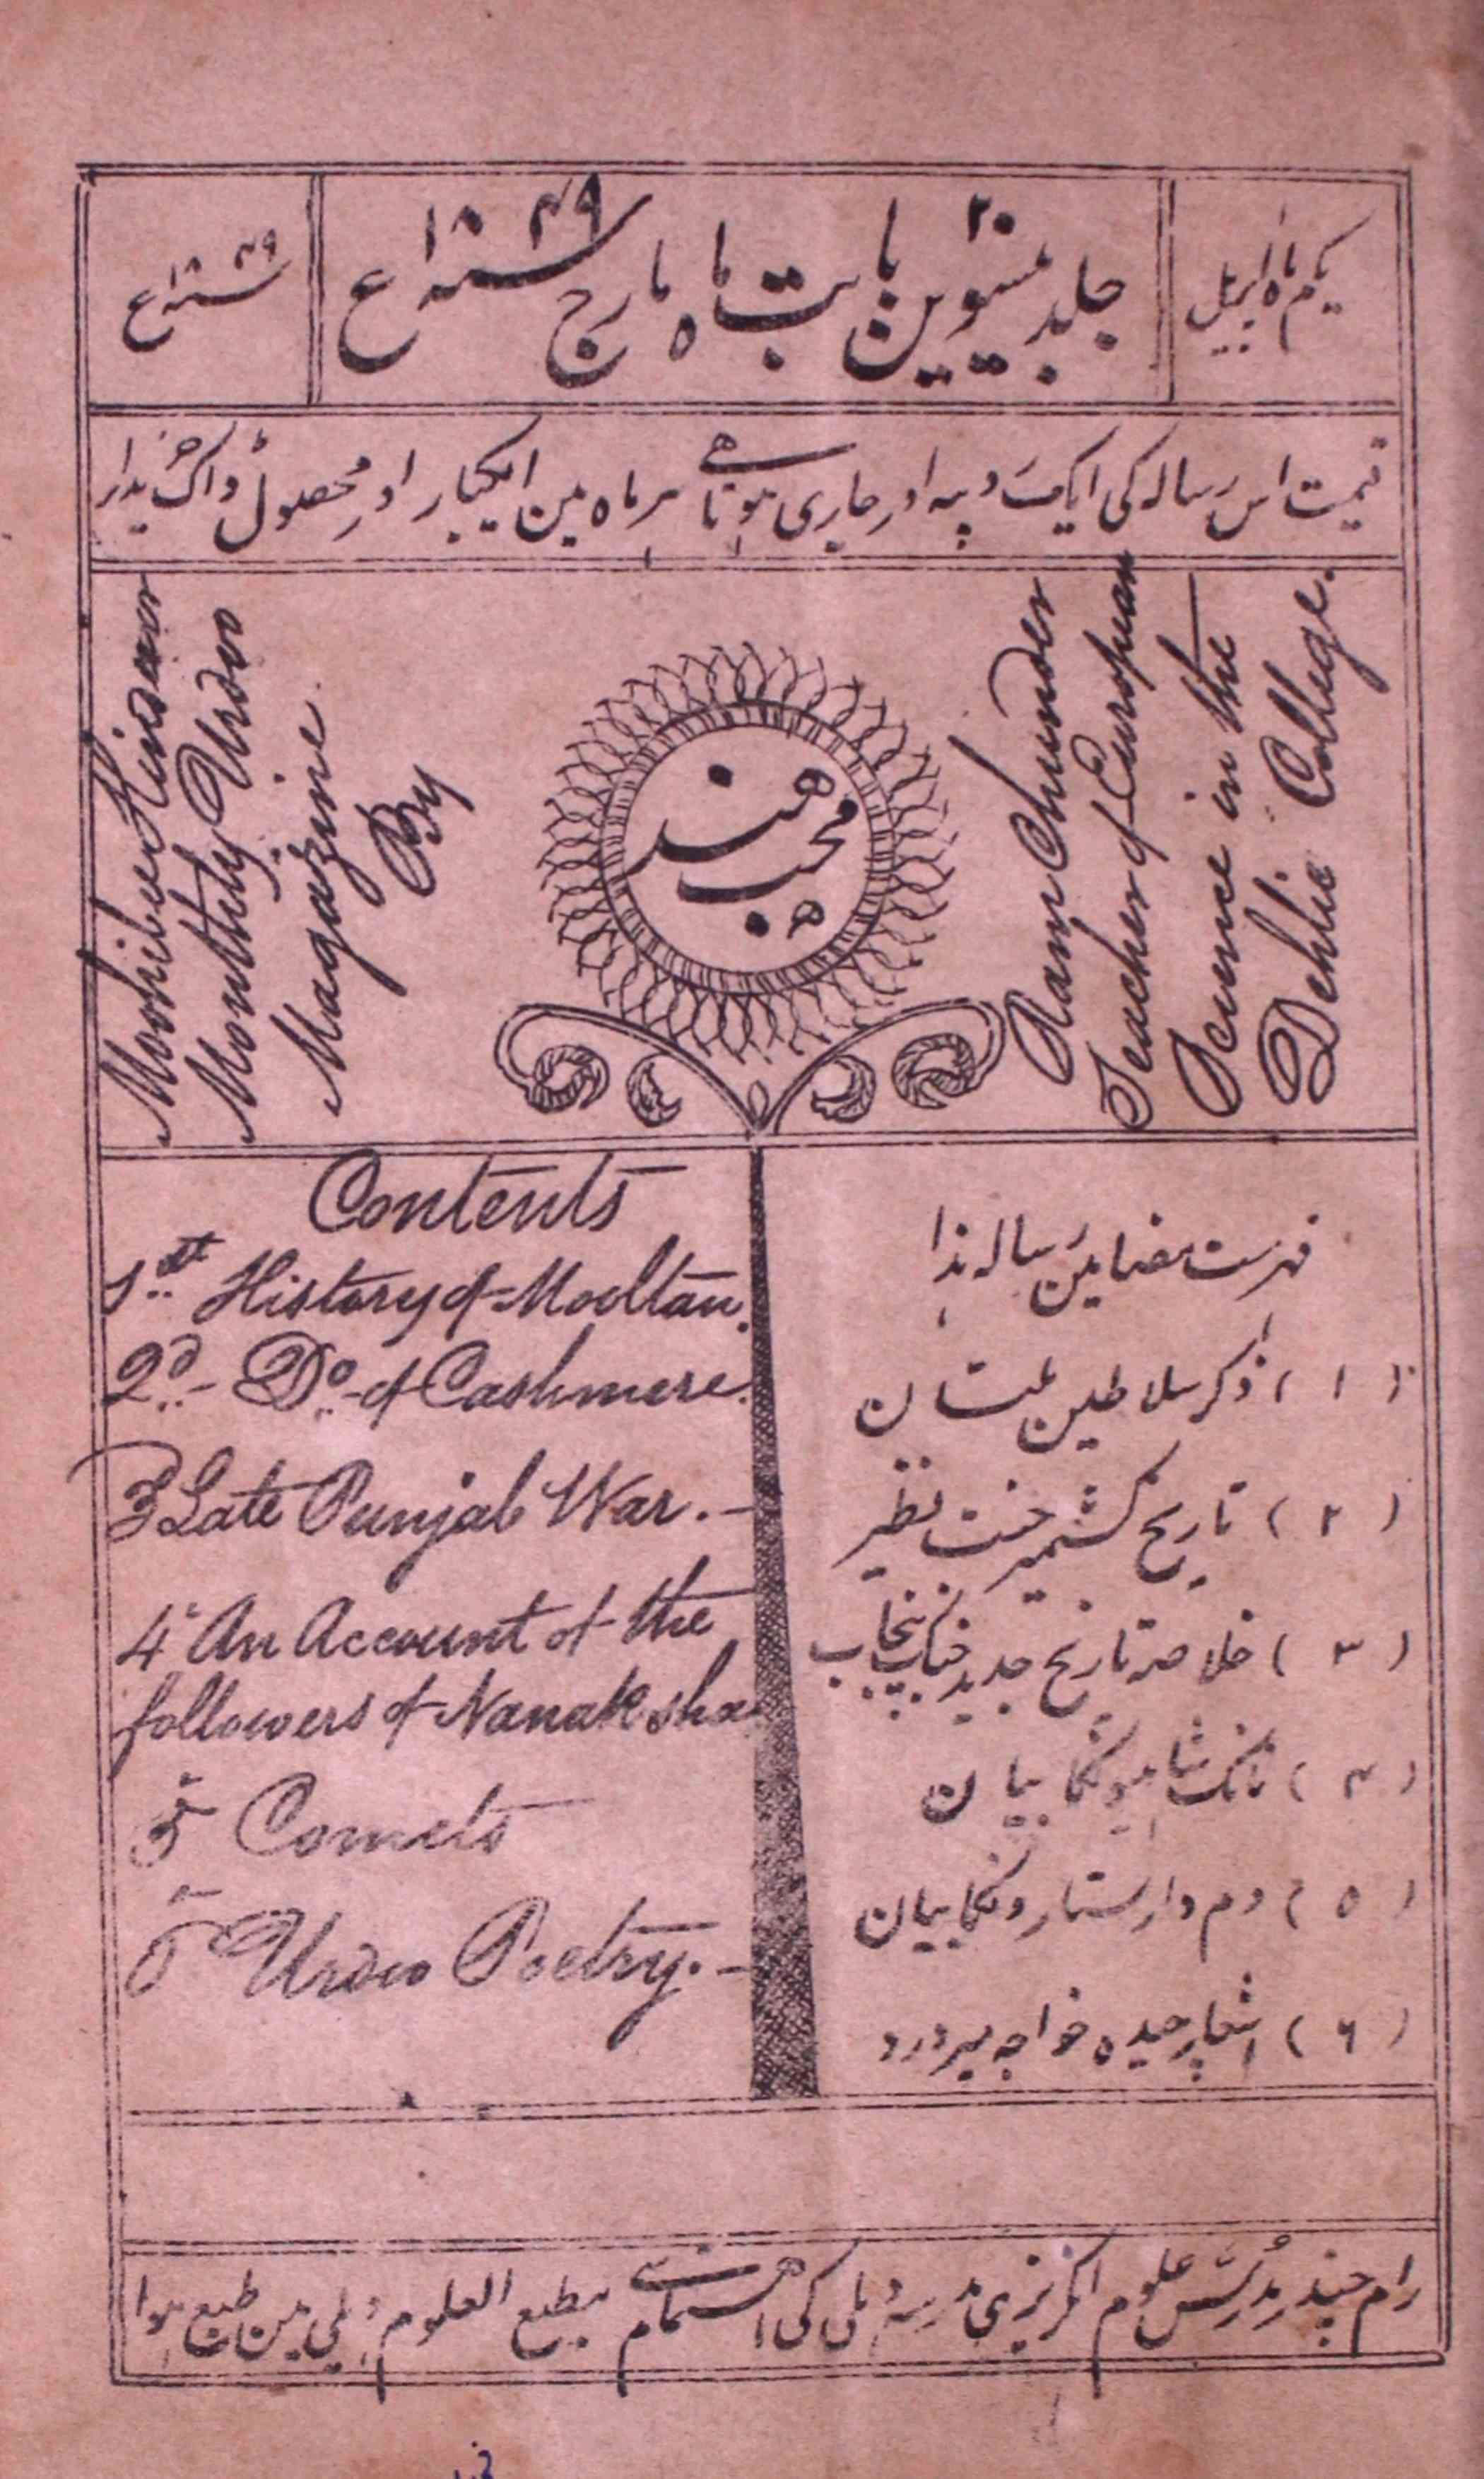 یکم ماہ اپریل
جلد بیسویں ۲۰ بابت ماہ مارچ ۱۸۴۹ سنہ ع
۱۸۴۹ سنہ ع
قیمت اس رسالہ کی ایک روپیہ اور جاری ہوتا ہے ہر ماہ مین ایکبار اور محصول ڈاک ذمہ خریدار
Moohibbe Hind our
Monthly Urdoo
Magazine
By
محب ہند
Ram Chunder
Teacher of European
Science in the
Dehlie College.
Contents
1st History of Mooltan.
2d - Do - of Cashmere.
3 Late Punjab War. -
4 An Account of the
followers of Nanak sha
5 Comets
6 Urdoo Poetry. -
فہرست مضامین رسالہ ہذا
(۱) ذکر سلاطین ملتان
(۲) تاریخ کشمیر جنت نظیر
(۳) خلاصہ تاریخ جدید جنگ پنجاب
(۴) نانک شاہیونکا بیان
(۵) دم دار ستارونکا بیان
(۶) اشعار چیدہ خواجہ میر درد
رام چندر مدرس علوم انگریزی مدرسہ دہلی کی اہتمام سے مطبع العلوم دہلی مین طبع ہوا